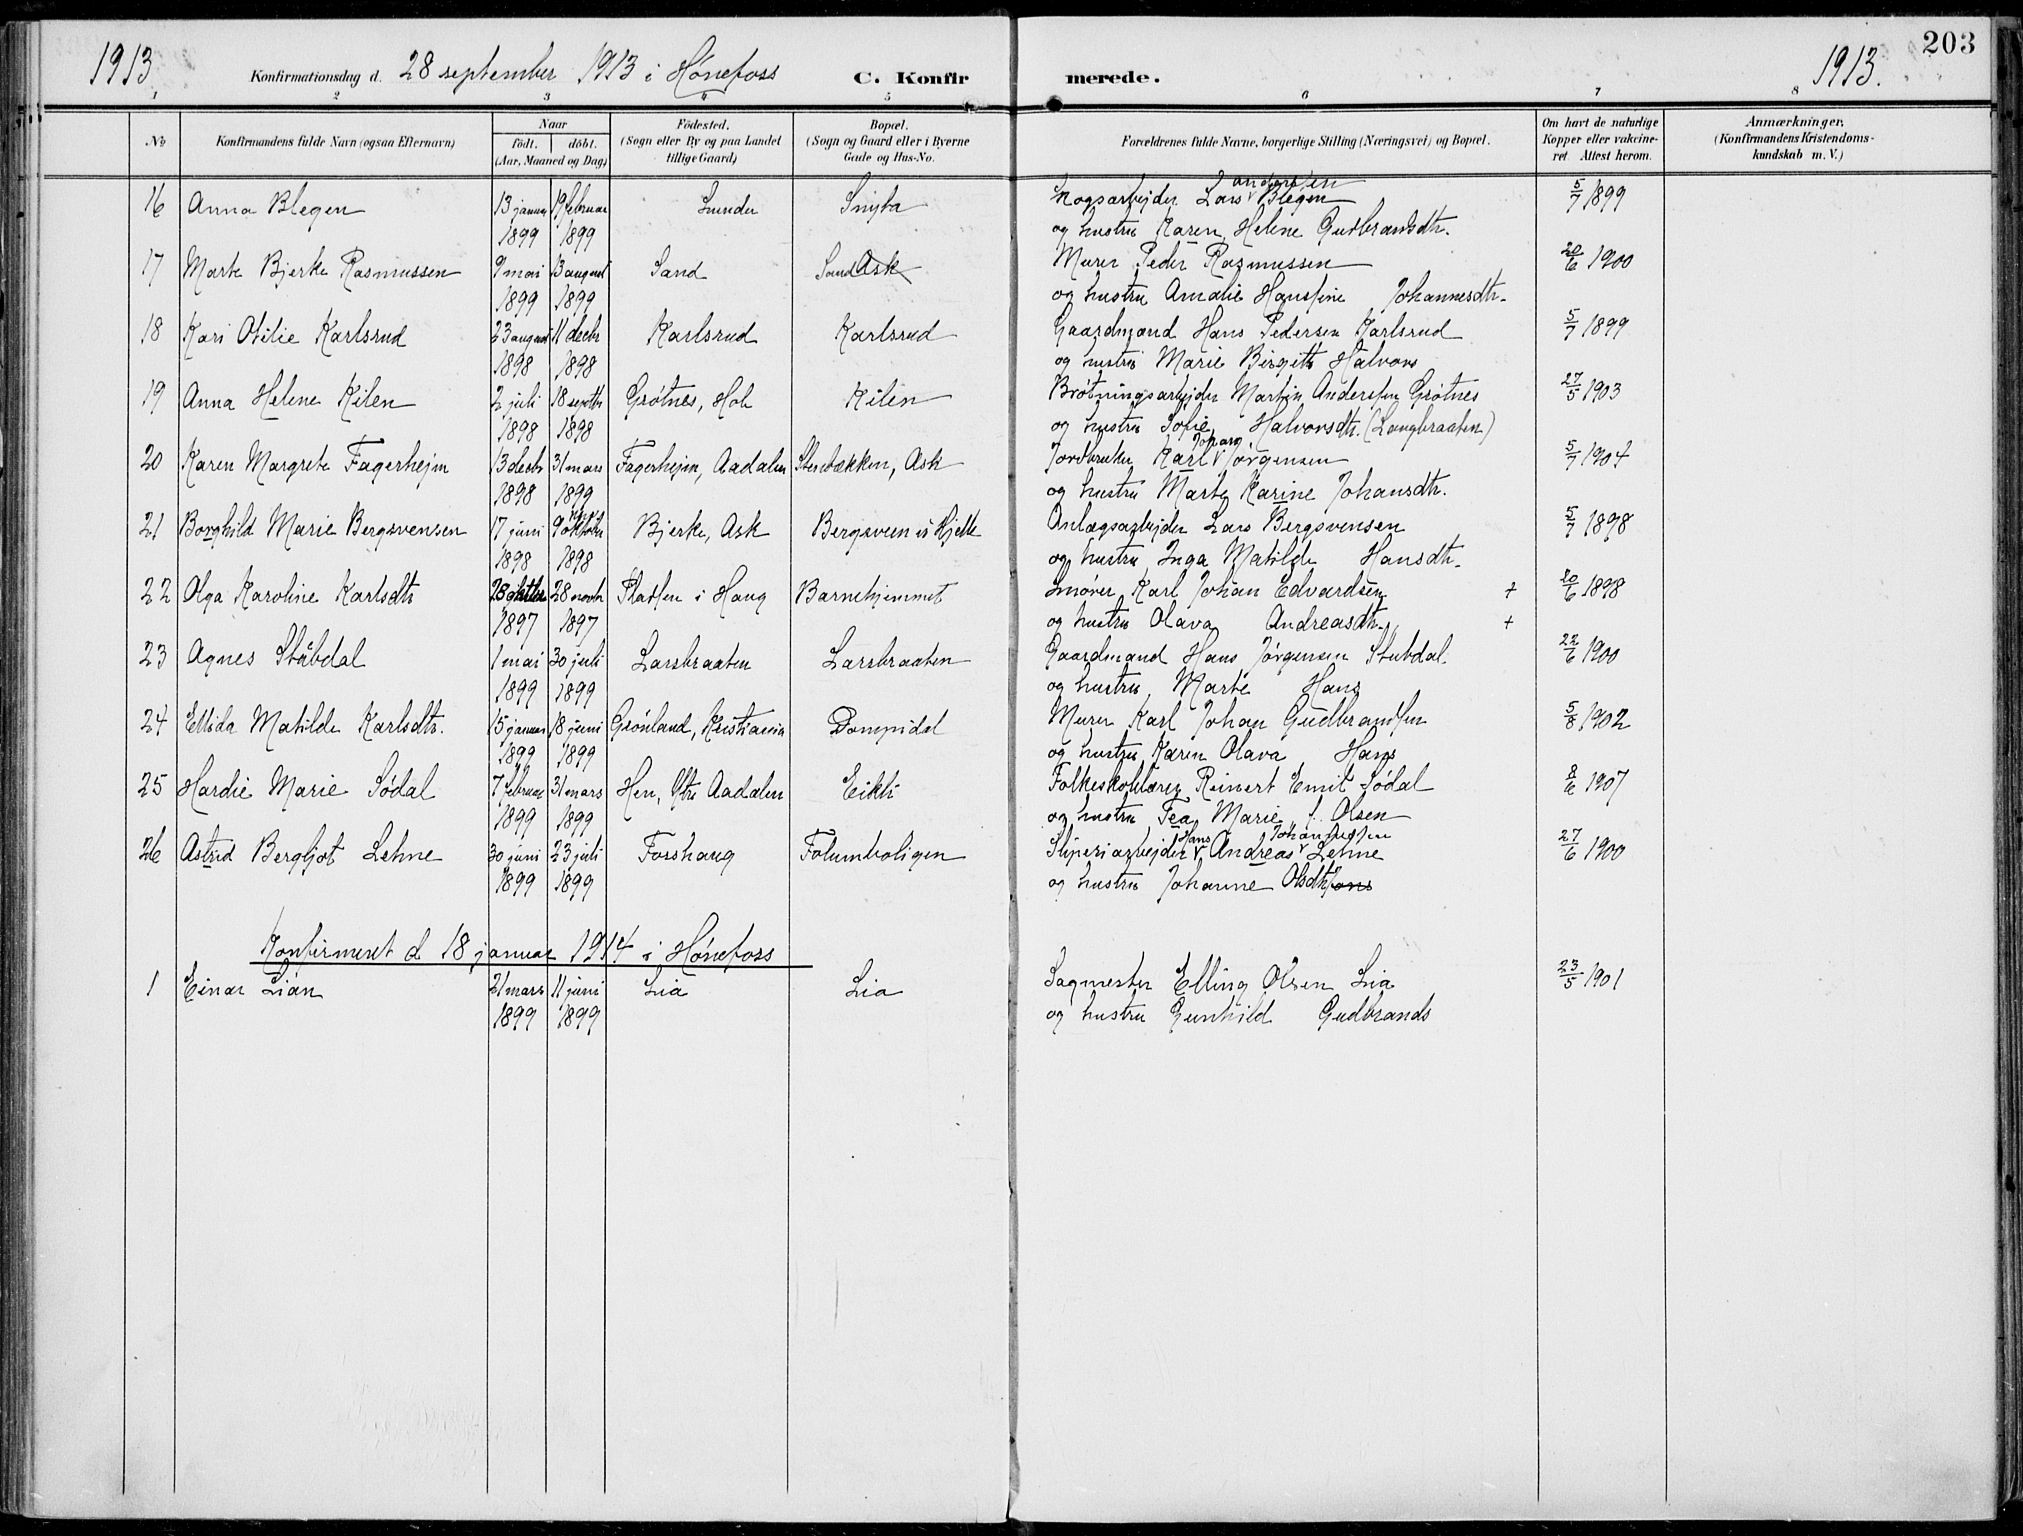 1913
Konfirmationsdag d. 28 september 1913 i Hønefoss
C. Konfirmerede.
1913.
203
1 2 3 4 5 6 7 8
No
Konfirmandens fulde Navn (ogsaa Efternavn)
Naar
født. døbt.
(Aar, Maaned og Dag)
Fødested.
(Sogn eller By og paa Landet
tillige Gaard)
Bopæl.
(Sogn og Gaard eller i Byerne
Gade og Hus-No.
Forældrenes fulde Navne, borgerlige Stilling (Næringsvei) og Bopæl.
Om havt de naturlige
Kopper eller vakcine-
ret. Attest herom.
Anmærkninger,
(Konfirmandens Kristendoms-
kundskab m. V.)
16 Anna Blegen 13 januar 19 februar Lunder Snyta Skogsarbejder Lars Andersen Blegen 5/7 1899
1899 1899 og hustru Karen Helene Gudbrandsdtr.
17 Marte Bjerke Rasmussen 9 mai 13 august Sand Sand Ask Murer Peder Rasmussen 20/6 1900
1899 1899 og hustru Amalie Hansine Johannesdtr.
18 Kari Otilie Karlsrud 23 august 11 decbr Karlsrud Karlsrud Gaardmand Hans Pedersen Karlsrud 5/7 1899
1898 1898 og hustru Marie Birgitte Halvors
19 Anna Helene Kilen 2 juli 18 septbr Grøtnes, Hole Kilen Brøtningsarbejder Martin Andersen Grøtnes 27/5 1903
1898 1898 og hustru Sofie Halvorsdtr. (Langbraaten)
20 Karen Margrete Fagerhejm 13 decbr 31 mars Fagerhejm, Aadalen Stenbækken, Ask Jordbruker Karl Johan Jørgensen 5/7 1904
1898 1899 og hustru Marte Karine Johansdtr.
21 Borghild Marie Bergsvensen 17 juni 9 oktober Bjerke, Ask Bergsveen u Hjelle Anlægsarbejder Lars Bergsvensen 5/7 1898
1898 1898 og hustru Inga Matilde Hansdtr.
22 Olga Karoline Karlsdtr 28 oktbr 28 novbr Pladsen i Haug Barnehjemmet Smører Karl Johan Edvardsen + 20/6 1898
1897 1897 og hustru Olava Andreasdtr. +
23 Agnes Stubdal 1 mai 30 juli Larsbraaten Larsbraaten Gaardmand Hans Jørgensen Stubdal. 22/6 1900
1899 1899 og hustru Marte Hans
24 Ellida Matilde Karlsdtr. 15 januar 18 juni Grønland, Kristiania Dompidal Murer Karl Johan Gudbrandsen 5/8 1902
1899 1899 og hustru Karen Olava Hans
25 Hardie Marie Sødal 7 februar 31 mars Hen, Ytre Aadalen Eikli Folkeskolelærer Reinert Emil Sødal 8/6 1907
1899 1899 og hustru Tea Marie f. Olsen
26 Astrid Bergljot Lehne 30 juni 23 juli Forshaug Folumboligen Sliperiarbejder Hans Andreas Johannessen Lehne 27/6 1900
1899 1899 og hustru Johanne Olsdtr
Konfirmeret d 18 januar 1914 i Hønefoss
1 Einar Lian 21 mars 11 juni Lia Lia Sagmester Elling Olsen Lia 23/5 1901
1899 1899 og hustru Gunhild Gudbrands